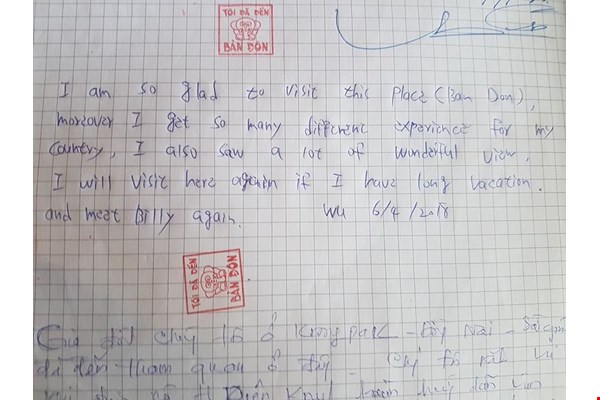 TÔI ĐÃ ĐẾN
BẢN ĐÔN
I am so glad to visit this place (Ban Don),
moreover I get so many different experience for my
country, I also saw a lot of wonderful view.
I will visit here again if I have long vacation.
and meet Billy again. Wu 6/4/2018
TÔI ĐÃ ĐẾN
BẢN ĐÔN
Gia đình chúng tôi ở Krông pak - Đồng Nai - Sài gòn
đã đến tham quan ở đây